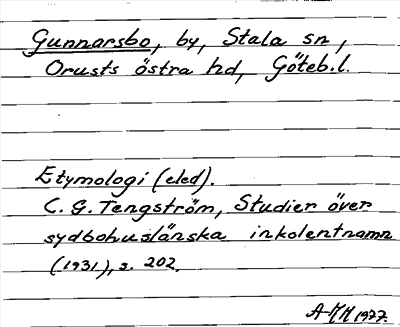 Gunnarsbo, by, Stala sn,
Orusts östra hd, Göteb.l.
Etymologi (eled).
C. G. Tengström, Studier över
sydbohuslänska inkolentnamn
(1931), s. 202.
AMM 1977.